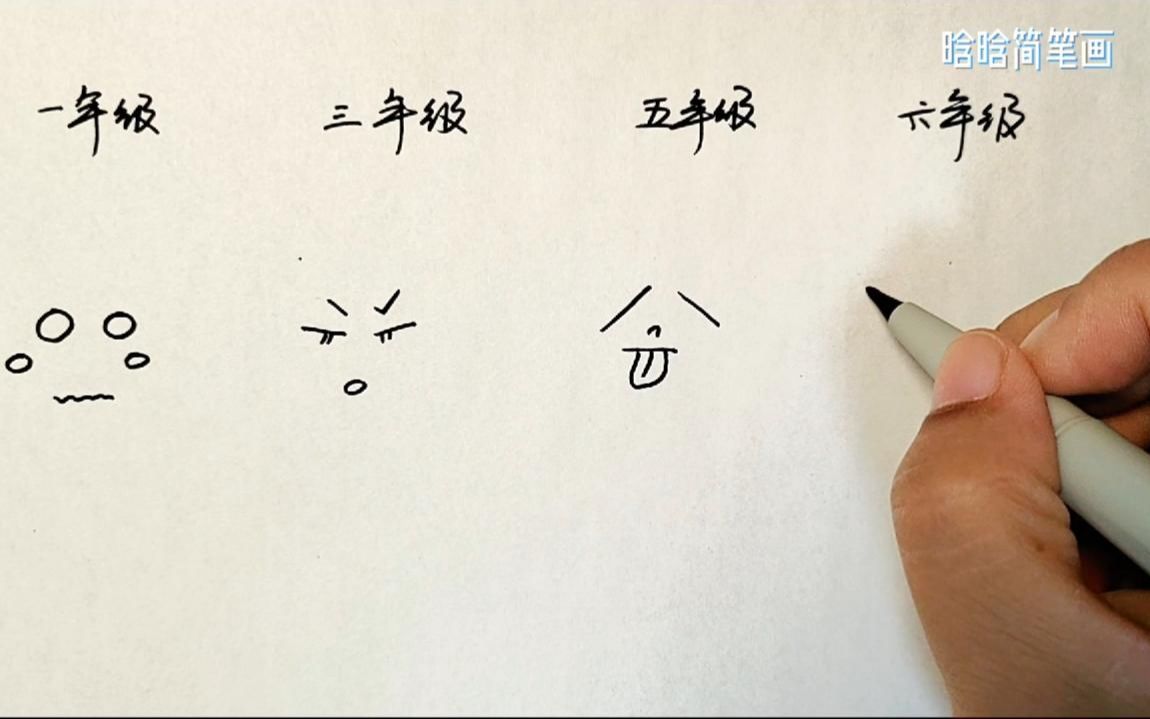 晗晗简笔画
一年级 三年级 五年级 六年级